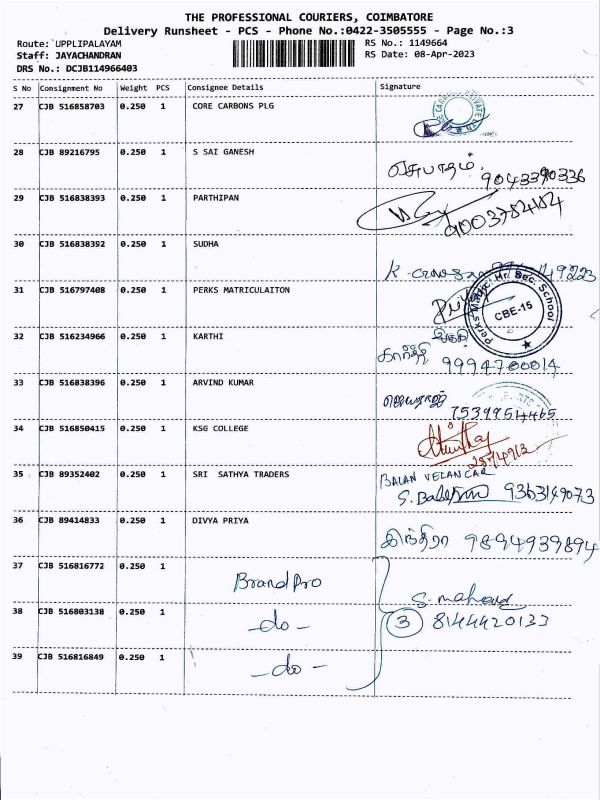 THE PROFESSIONAL COURIERS, COIMBATORE
Delivery Runsheet - PCS - Phone No.:0422-3505555 - Page No.:3
Route: UPPLIPALAYAM
RS No.: 1149664
Staff: JAYACHANDRAN
RS Date: 08-Apr-2023
DRS No.: DCJB114966403
S No Consignment No Weight PCS Consignee Details Signature
27 CJB 516858703 0.250 1 CORE CARBONS PLG
28 CJB 89216795 0.250 1 S SAI GANESH
9043390336
29 CJB 516838393 0.250 1 PARTHIPAN
30 CJB 516838392 0.250 1 SUDHA
31 CJB 516797408 0.250 1 PERKS MATRICULAITON
Perks Matric. Hr. Sec. School
CBE-15
32 CJB 516234966 0.250 1 KARTHI
கார்த்தி 9994700014
33 CJB 516838396 0.250 1 ARVIND KUMAR
34 CJB 516850415 0.250 1 KSG COLLEGE
35 CJB 89352402 0.250 1 SRI SATHYA TRADERS
BALAN VELANCAR
9363149073
36 CJB 89414833 0.250 1 DIVYA PRIYA
இந்திரா 9894939894
37 CJB 516816772 0.250 1 BrandPro
38 CJB 516803138 0.250 1 -do-
3 8144420133
39 CJB 516816849 0.250 1 -do-